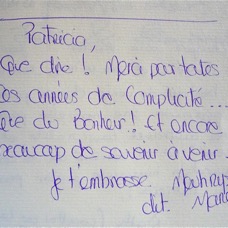 Patricia,
Que dire ! Merci pour toutes
ces années de Complicité...
Que du Bonheur ! Et encore
beaucoup de souvenir à venir
Je t'embrasse
dit